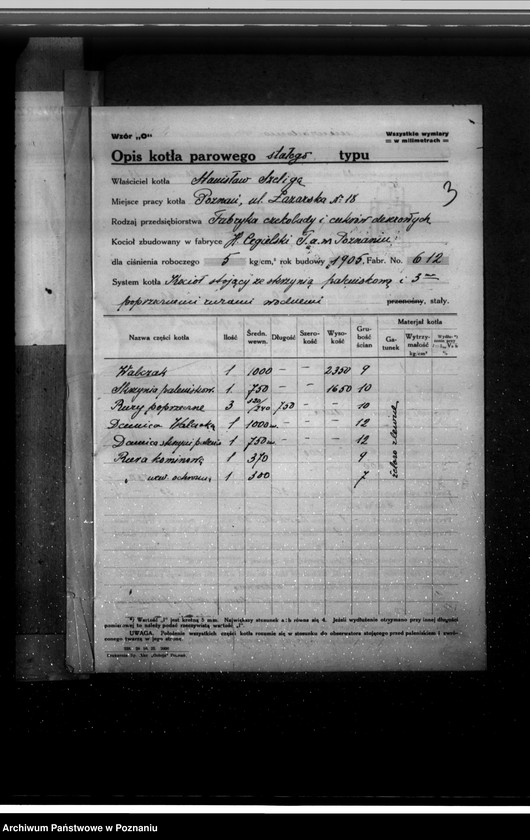 Wzór „O"
Wszystkie wymiary
= w milimetrach =
Opis kotła parowego stałego typu
3
Właściciel kotła Stanisław Szeliga
Miejsce pracy kotła Poznań, ul. Łazarska № 18
Rodzaj przedsiębiorstwa Fabryka czekolady i cukrów deserowych
Kocioł zbudowany w fabryce H. Cegielski T. a. w Poznaniu
dla ciśnienia roboczego 5 kg/cm,² rok budowy 1905, Fabr. No. 612
System kotła Kocioł stojący ze skrzynią paleniskową i 3ma
poprzecznemi rurami wodnemi przenośny, stały.
Nazwa części kotła Ilość Średn. wewn. Długość Szerokość Wysokość Grubość ścian Materjał kotła
Gatunek Wytrzymałość kg/cm²
Walczak 1 1000 - - 2350 9
Skrzynia paleniskow. 1 750 - - 1650 10
Rury poprzeczne 3 240 750 - - 10
Dennica Walczaka 1 1000 w. - - - 12
Dennica skrzyni palenis 1 750 w. - - - 12
Rura kominową 1 370 9
„ wew. ochronna 1 300 7
żelazo zlewne
*) Wartość „l" jest krotną 5 mm. Największy stosunek a:b równa się 4. Jeżeli wydłużenie otrzymano przy innej długości
pomiarowej to należy podać rzeczywistą wartość „l".
UWAGA. Położenie wszystkich części kotła rozumie się w stosunku do obserwatora stojącego przed paleniskiem i zwróconego
twarzą w jego stronę.
Poznań.
Archiwum Państwowe w Poznaniu